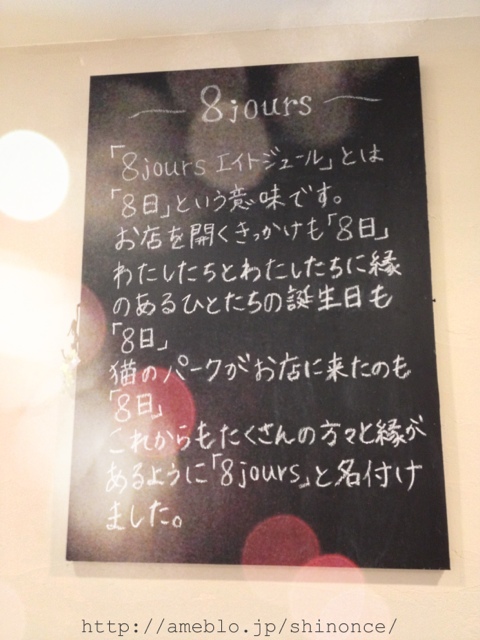 8jours
「8jours エイトジュール」とは
「8日」という意味です。
お店を開くきっかけも「8日」
わたしたちとわたしたちに縁
のあるひとたちの誕生日も
「8日」
猫のパークがお店に来たのも
「8日」
これからもたくさんの方々と縁が
あるように「8jours」と名付け
ました。
http://ameblo.jp/shinonce/